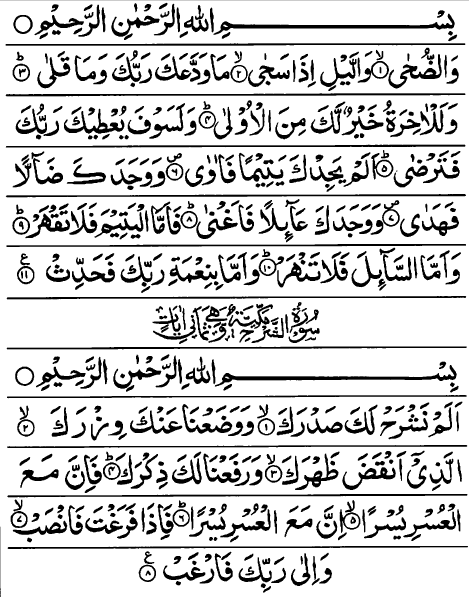 بِسْمِ اللهِ الرَّحْمٰنِ الرَّحِيْمِ ○
وَالضُّحٰى ۙ﴿۱﴾ وَالَّيْلِ اِذَا سَجٰى ۙ﴿۲﴾ مَا وَدَّعَكَ رَبُّكَ وَمَا قَلٰى ؕ﴿۳﴾
وَلَلْاٰخِرَةُ خَيْرٌ لَّكَ مِنَ الْاُوْلٰى ؕ﴿۴﴾ وَلَسَوْفَ يُعْطِيْكَ رَبُّكَ
فَتَرْضٰى ؕ﴿۵﴾ اَلَمْ يَجِدْكَ يَتِيْمًا فَاٰوٰى ۪﴿۶﴾ وَوَجَدَكَ ضَآلًّا
فَهَدٰى ۪﴿۷﴾ وَوَجَدَكَ عَآىِٕلًا فَاَغْنٰى ؕ﴿۸﴾ فَاَمَّا الْيَتِيْمَ فَلَا تَقْهَرْ ؕ﴿۹﴾
وَاَمَّا السَّآىِٕلَ فَلَا تَنْهَرْ ؕ﴿۱۰﴾ وَاَمَّا بِنِعْمَةِ رَبِّكَ فَحَدِّثْ ﴿۱۱﴾ ع
سُوْرَةُ اَلَمْ نَشْرَحْ مَكِّيَّةٌ وَّهِيَ ثَمَانِيْ اٰيَاتٍ
بِسْمِ اللهِ الرَّحْمٰنِ الرَّحِيْمِ ○
اَلَمْ نَشْرَحْ لَكَ صَدْرَكَ ۙ﴿۱﴾ وَوَضَعْنَا عَنْكَ وِزْرَكَ ۙ﴿۲﴾
الَّذِيْٓ اَنْقَضَ ظَهْرَكَ ۙ﴿۳﴾ وَرَفَعْنَا لَكَ ذِكْرَكَ ؕ﴿۴﴾ فَاِنَّ مَعَ
الْعُسْرِ يُسْرًا ۙ﴿۵﴾ اِنَّ مَعَ الْعُسْرِ يُسْرًا ؕ﴿۶﴾ فَاِذَا فَرَغْتَ فَانْصَبْ ۙ﴿۷﴾
وَاِلٰى رَبِّكَ فَارْغَبْ ﴿۸﴾ ع